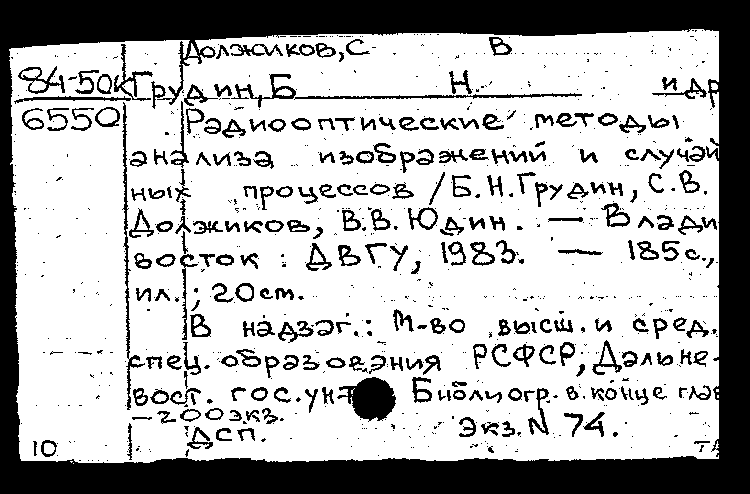 Должиков, С В
84-50к Грудин, Б Н. и др
6550 Радиооптические методы
анализа изображений и случай
ных процессов / Б.Н.Грудин, С.В.
Должиков, В.В.Юдин. — Влади
восток : ДВГУ, 1983. — 185с.,
ил. ; 20см.
В надзаг.: М-во высш. и сред.
спец. образования РСФСР, Дальне-
вост. гос. ун-т Библиогр. в. конце глав
— 200экз.
ДСП. Экз. N 74.
10